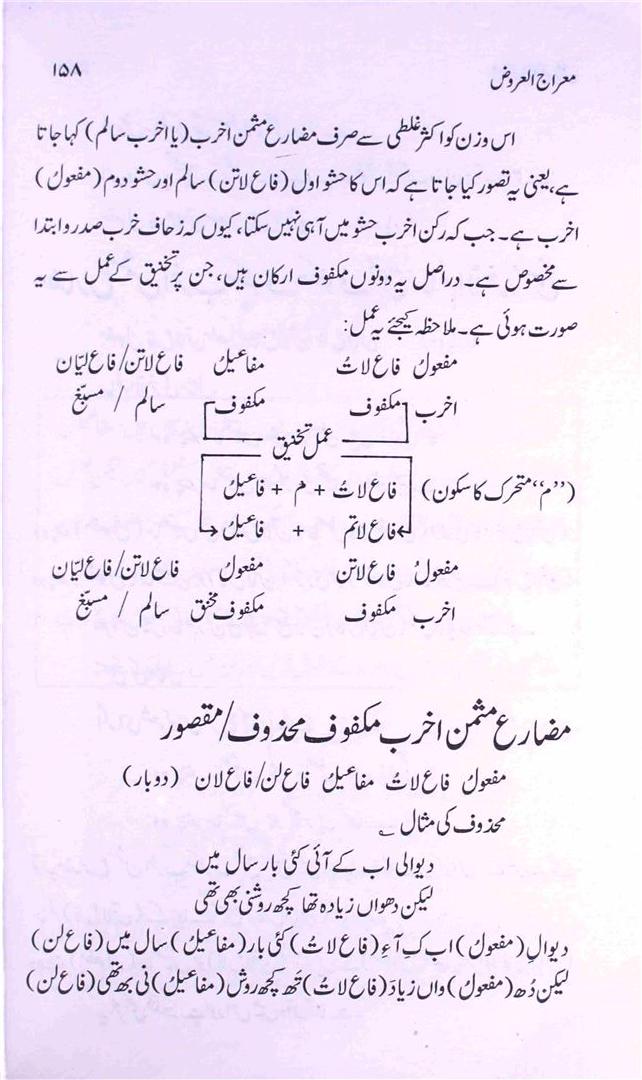 معراج العروض ۱۵۸
اس وزن کو اکثر غلطی سے صرف مضارع مثمن اخرب (یا اخرب سالم) کہا جاتا
ہے، یعنی یہ تصور کیا جاتا ہے کہ اس کا حشو اول (فاع لاتن) سالم اور حشو دوم (مفعولُ)
اخرب ہے۔ جب کہ رکن اخرب حشو میں آ ہی نہیں سکتا، کیوں کہ زحاف خرب صدر و ابتدا
سے مخصوص ہے۔ دراصل یہ دونوں مکفوف ارکان ہیں، جن پر تخنیق کے عمل سے یہ
صورت ہوئی ہے۔ ملاحظہ کیجئے یہ عمل:
مفعولُ فاع لاتُ مفاعیلُ فاع لاتن/فاع لیّان
اخرب مکفوف مکفوف سالم / مسبّغ
عمل تخنیق
("م" متحرک کا سکون) فاع لاتُ + م + فاعیلُ
فاع لاتم + فاعیلُ
مفعولُ فاع لاتن مفعولُ فاع لاتن/فاع لیّان
اخرب مکفوف مکفوف مخنق سالم / مسبّغ
مضارع مثمن اخرب مکفوف محذوف/مقصور
مفعولُ فاع لاتُ مفاعیلُ فاع لن/فاع لان (دوبار)
محذوف کی مثال ؎
دیوالی اب کے آئی کئی بار سال میں
لیکن دھواں زیادہ تھا کچھ روشنی بھی تھی
دیوالِ (مفعولُ) اب کِ آءِ (فاع لاتُ) کئی بار (مفاعیلُ) سال میں (فاع لن)
لیکن دُھ (مفعولُ) واں زیادَ (فاع لاتُ) تَھ کچھ روش (مفاعیلُ) نی بھ تھی (فاع لن)